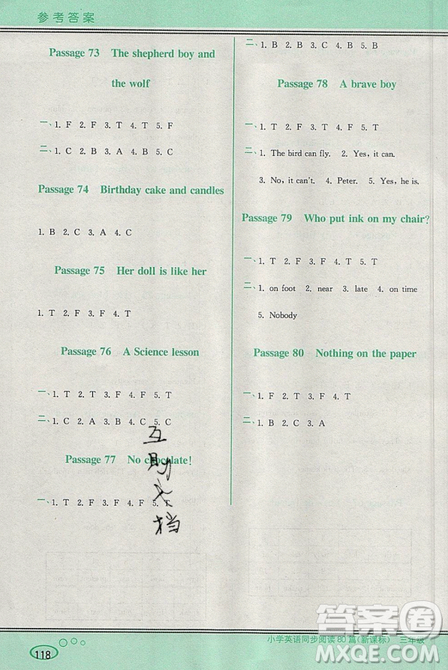 参考答案
Passage 73 The shepherd boy and
the wolf
一、1. F 2. F 3. T 4. T 5. F
二、1. C 2. B 3. A 4. B 5. C
Passage 74 Birthday cake and candles
1. B 2. C 3. A 4. C
Passage 75 Her doll is like her
1. T 2. F 3. F 4. T
Passage 76 A Science lesson
一、1. T 2. F 3. F 4. F 5. T
二、1. C 2. A 3. B 4. B 5. C
Passage 77 No chocolate!
一、1. T 2. F 3. F 4. F 5. T
二、1. B 2. C 3. A 4. B 5. B
Passage 78 A brave boy
一、1. F 2. T 3. F 4. T 5. F
二、1. The bird can fly. 2. Yes, it can.
3. No, it can't. 4. Peter. 5. Yes, he is.
Passage 79 Who put ink on my chair?
一、1. T 2. F 3. F 4. T
二、1. on foot 2. near 3. late 4. on time
5. Nobody
Passage 80 Nothing on the paper
一、1. T 2. F 3. F 4. F 5. T
二、1. B 2. C 3. A
互助文档
118
小学英语同步阅读80篇(新课标) 三年级
MXQE.COM